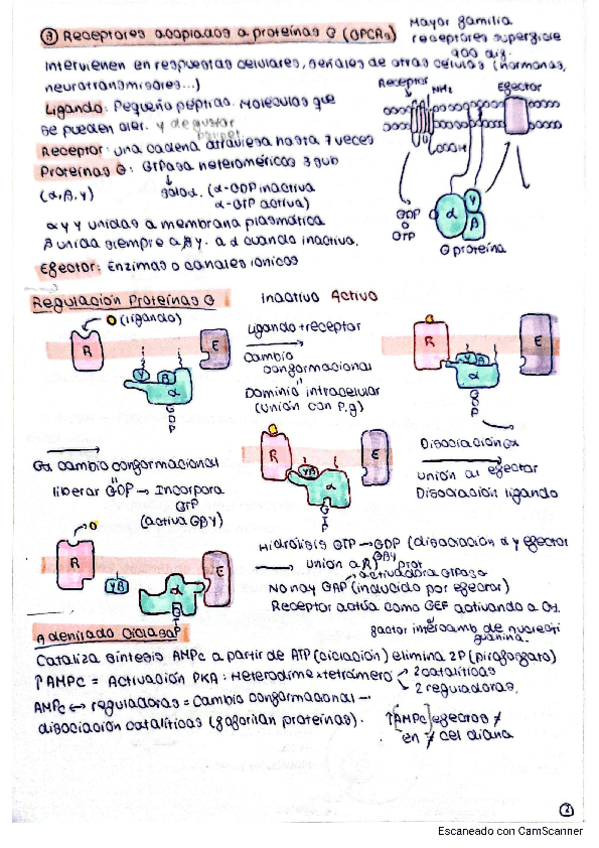 ③ Receptores acoplados a proteínas G (GPCRs)
Mayor familia
receptores superficie
900 dif.
Intervienen en respuestas celulares, señales de otras células (hormonas,
neurotransmisores...)
Ligando: Pequeño péptidos. Moléculas que
se pueden oler. y degustar
Receptor: una cadena atraviesa hasta 7 veces
Proteínas G: GTPasa heteroméricas 3 sub
(α, β, γ) (α-GDP inactiva
α-GTP activa)
α y γ unidas a membrana plasmática
β unida siempre a γ. a α cuando inactiva.
Efector: Enzimas o canales iónicos
Receptor
NH₂
Efector
COOH
GDP
GTP
α
γ
β
G proteína
Regulación Proteínas G
Inactivo Activo
(ligando)
R
γ
β
α
G
D
P
E
Ligando+receptor
Cambio
conformacional
Dominio intracelular
(Unión con P.g)
R
γ
β
α
G
D
P
E
Gα cambio conformacional
liberar GDP → Incorpora
GTP
(activa Gβγ)
R
γβ
α
G
T
P
E
Disociación Gα
Unión al efector
Disociación ligando
R
γβ
α
G
T
P
E
Hidrólisis GTP → GDP (disociación α y efector
Gβγ
unión a R) prot
activadora GTPasa
No hay GAP (inducido por efector)
Receptor actúa como GEF activando a Gα.
factor intercamb de nucleoti
guanina.
Adenilado Ciclasa
Cataliza síntesis AMPc a partir de ATP (ciclación) elimina 2P (pirofosfato)
↑AMPc = Activación PKA: Heterodímero tetrámero
2 catalíticas
2 reguladoras.
AMPc ↔ reguladoras = Cambio conformacional -
disociación catalíticas (fosforilan proteínas).
↑[AMPc] efectos ≠
en ≠ cel diana
2
Escaneado con CamScanner